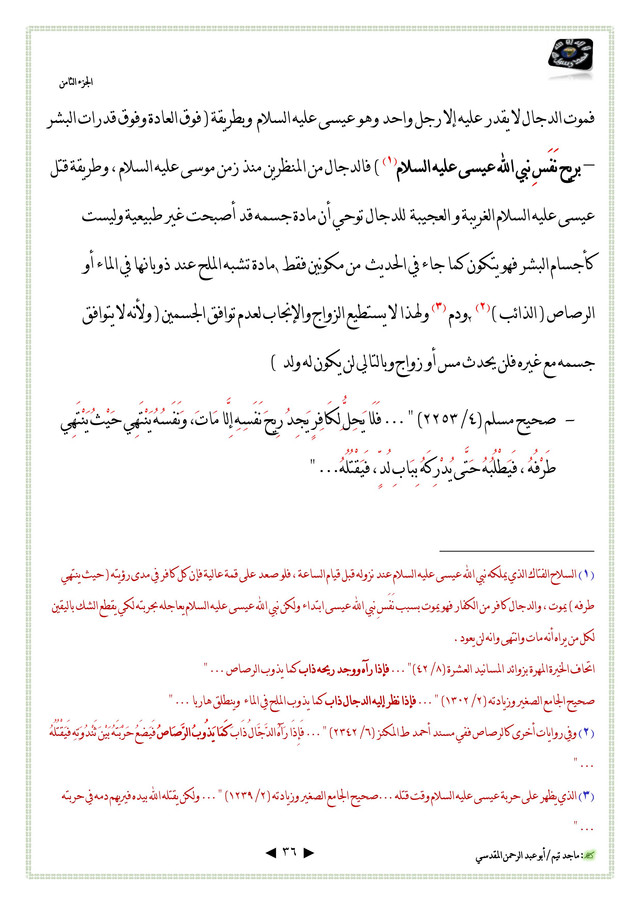 الجزء الثامن
فموت الدجال لا يقدر عليه إلا رجل واحد وهو عيسى عليه السلام وبطريقة ( فوق العادة وفوق قدرات البشر
– بريح نَفَسِ نبي الله عيسى عليه السلام(١) ) فالدجال من المنظرين منذ زمن موسى عليه السلام ، وطريقة قتل
عيسى عليه السلام الغريبة و العجيبة للدجال توحي أن مادة جسمه قد أصبحت غير طبيعية وليست
كأجسام البشر فهو يتكون كما جاء في الحديث من مكونين فقط ,مادة تشبه الملح عند ذوبانها في الماء أو
الرصاص ( الذائب )(٢) ,ودم (٣) ولهذا لا يستطيع الزواج والإنجاب لعدم توافق الجسمين ( ولأنه لا يتوافق
جسمه مع غيره فلن يحدث مس أو زواج وبالتالي لن يكون له ولد )
– صحيح مسلم (٤/ ٢٢٥٣) " ... فَلَا يَحِلُّ لِكَافِرٍ يَجِدُ رِيحَ نَفَسِهِ إِلَّا مَاتَ، وَنَفَسُهُ يَنْتَهِي حَيْثُ يَنْتَهِي
طَرْفُهُ ، فَيَطْلُبُهُ حَتَّى يُدْرِكَهُ بِبَابِ لُدٍّ ، فَيَقْتُلُهُ... "
(١) السلاح الفتاك الذي يملكه نبي الله عيسى عليه السلام عند نزوله قبل قيام الساعة ، فلو صعد على قمة عالية فإن كل كافر في مدى رؤيته ( حيث ينتهي
طرفه ) يموت ، والدجال كافر من الكفار فهو يموت بسبب نَفَسِ نبي الله عيسى ابتداء ولكن نبي الله عيسى عليه السلام يعاجله بحربته لكي يقطع الشك باليقين
لكل من يراه أنه مات وانتهى وانه لن يعود .
اتحاف الخيرة المهرة بزوائد المسانيد العشرة (٨/ ٤٢) " ... فإذا رآه ووجد ريحه ذاب كما يذوب الرصاص ... "
صحيح الجامع الصغير وزيادته (٢/ ١٣٠٢) " ... فإذا نظر إليه الدجال ذاب كما يذوب الملح في الماء وينطلق هاربا ... "
(٢) وفي روايات أخرى كالرصاص ففي مسند أحمد ط المكنز (٦/ ٢٣٤٢) " ... فَإِذَا رَآهُ الدَّجَّالُ ذَابَ كَمَا يَذُوبُ الرَّصَاصُ فَيَضَعُ حَرْبَتَهُ بَيْنَ ثَنْدُوَتِهِ فَيَقْتُلُهُ
... "
(٣) الذي يظهر على حربة عيسى عليه السلام وقت قتله ...صحيح الجامع الصغير وزيادته (٢/ ١٢٣٩) " ... ولكن يقتله الله بيده فيريهم دمه في حربته
... "
: ماجد تيم / أبو عبد الرحمن المقدسي
◄ ٣٦ ►